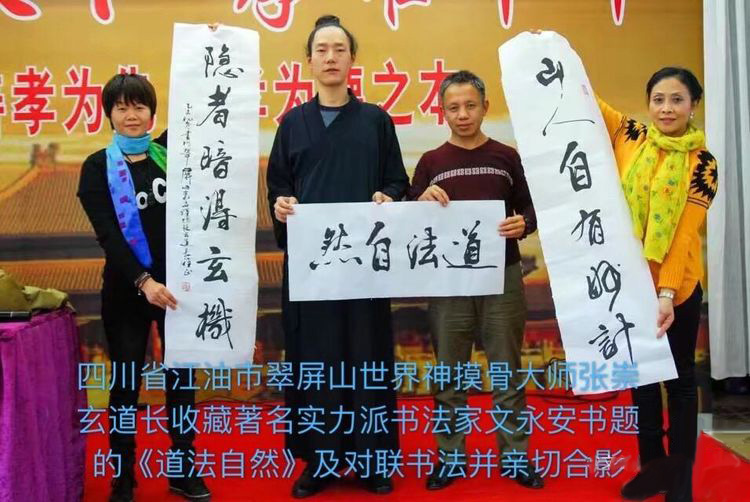 孝为
之本
隐者暗得玄機
道法自然
山人自有妙計
四川省江油市翠屏山世界神摸骨大师张崇
玄道长收藏著名实力派书法家文永安书题
的《道法自然》及对联书法并亲切合影